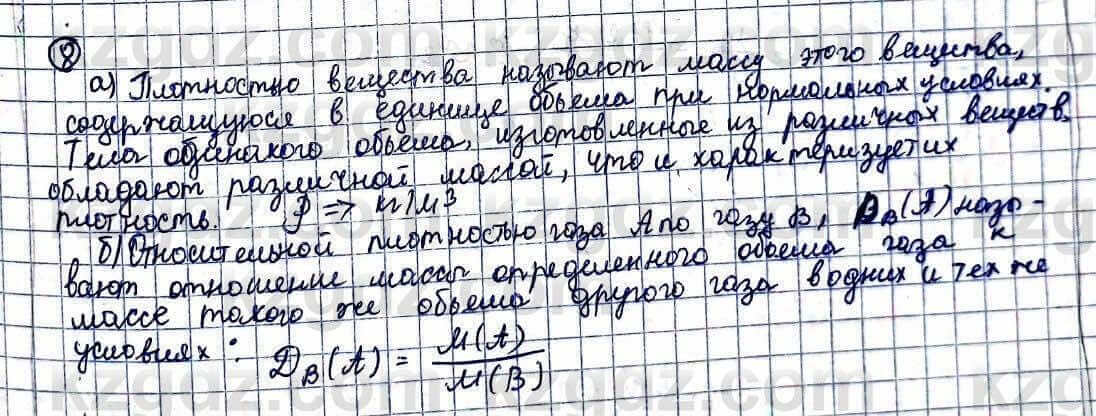 8
а) Плотностью вещества называют массу этого вещества,
содержащуюся в единице объема при нормальных условиях.
Тела одинакого объема, изготовленные из различных веществ,
обладают различной массой, что и характеризует их
плотность. ρ => кг/м³
б) Относительной плотностью газа А по газу В, D_B(A) назы-
вают отношение массы определенного объема газа к
массе такого же объема другого газа в одних и тех же
условиях: D_B(A) = M(A) / M(B)
kzgdz.com